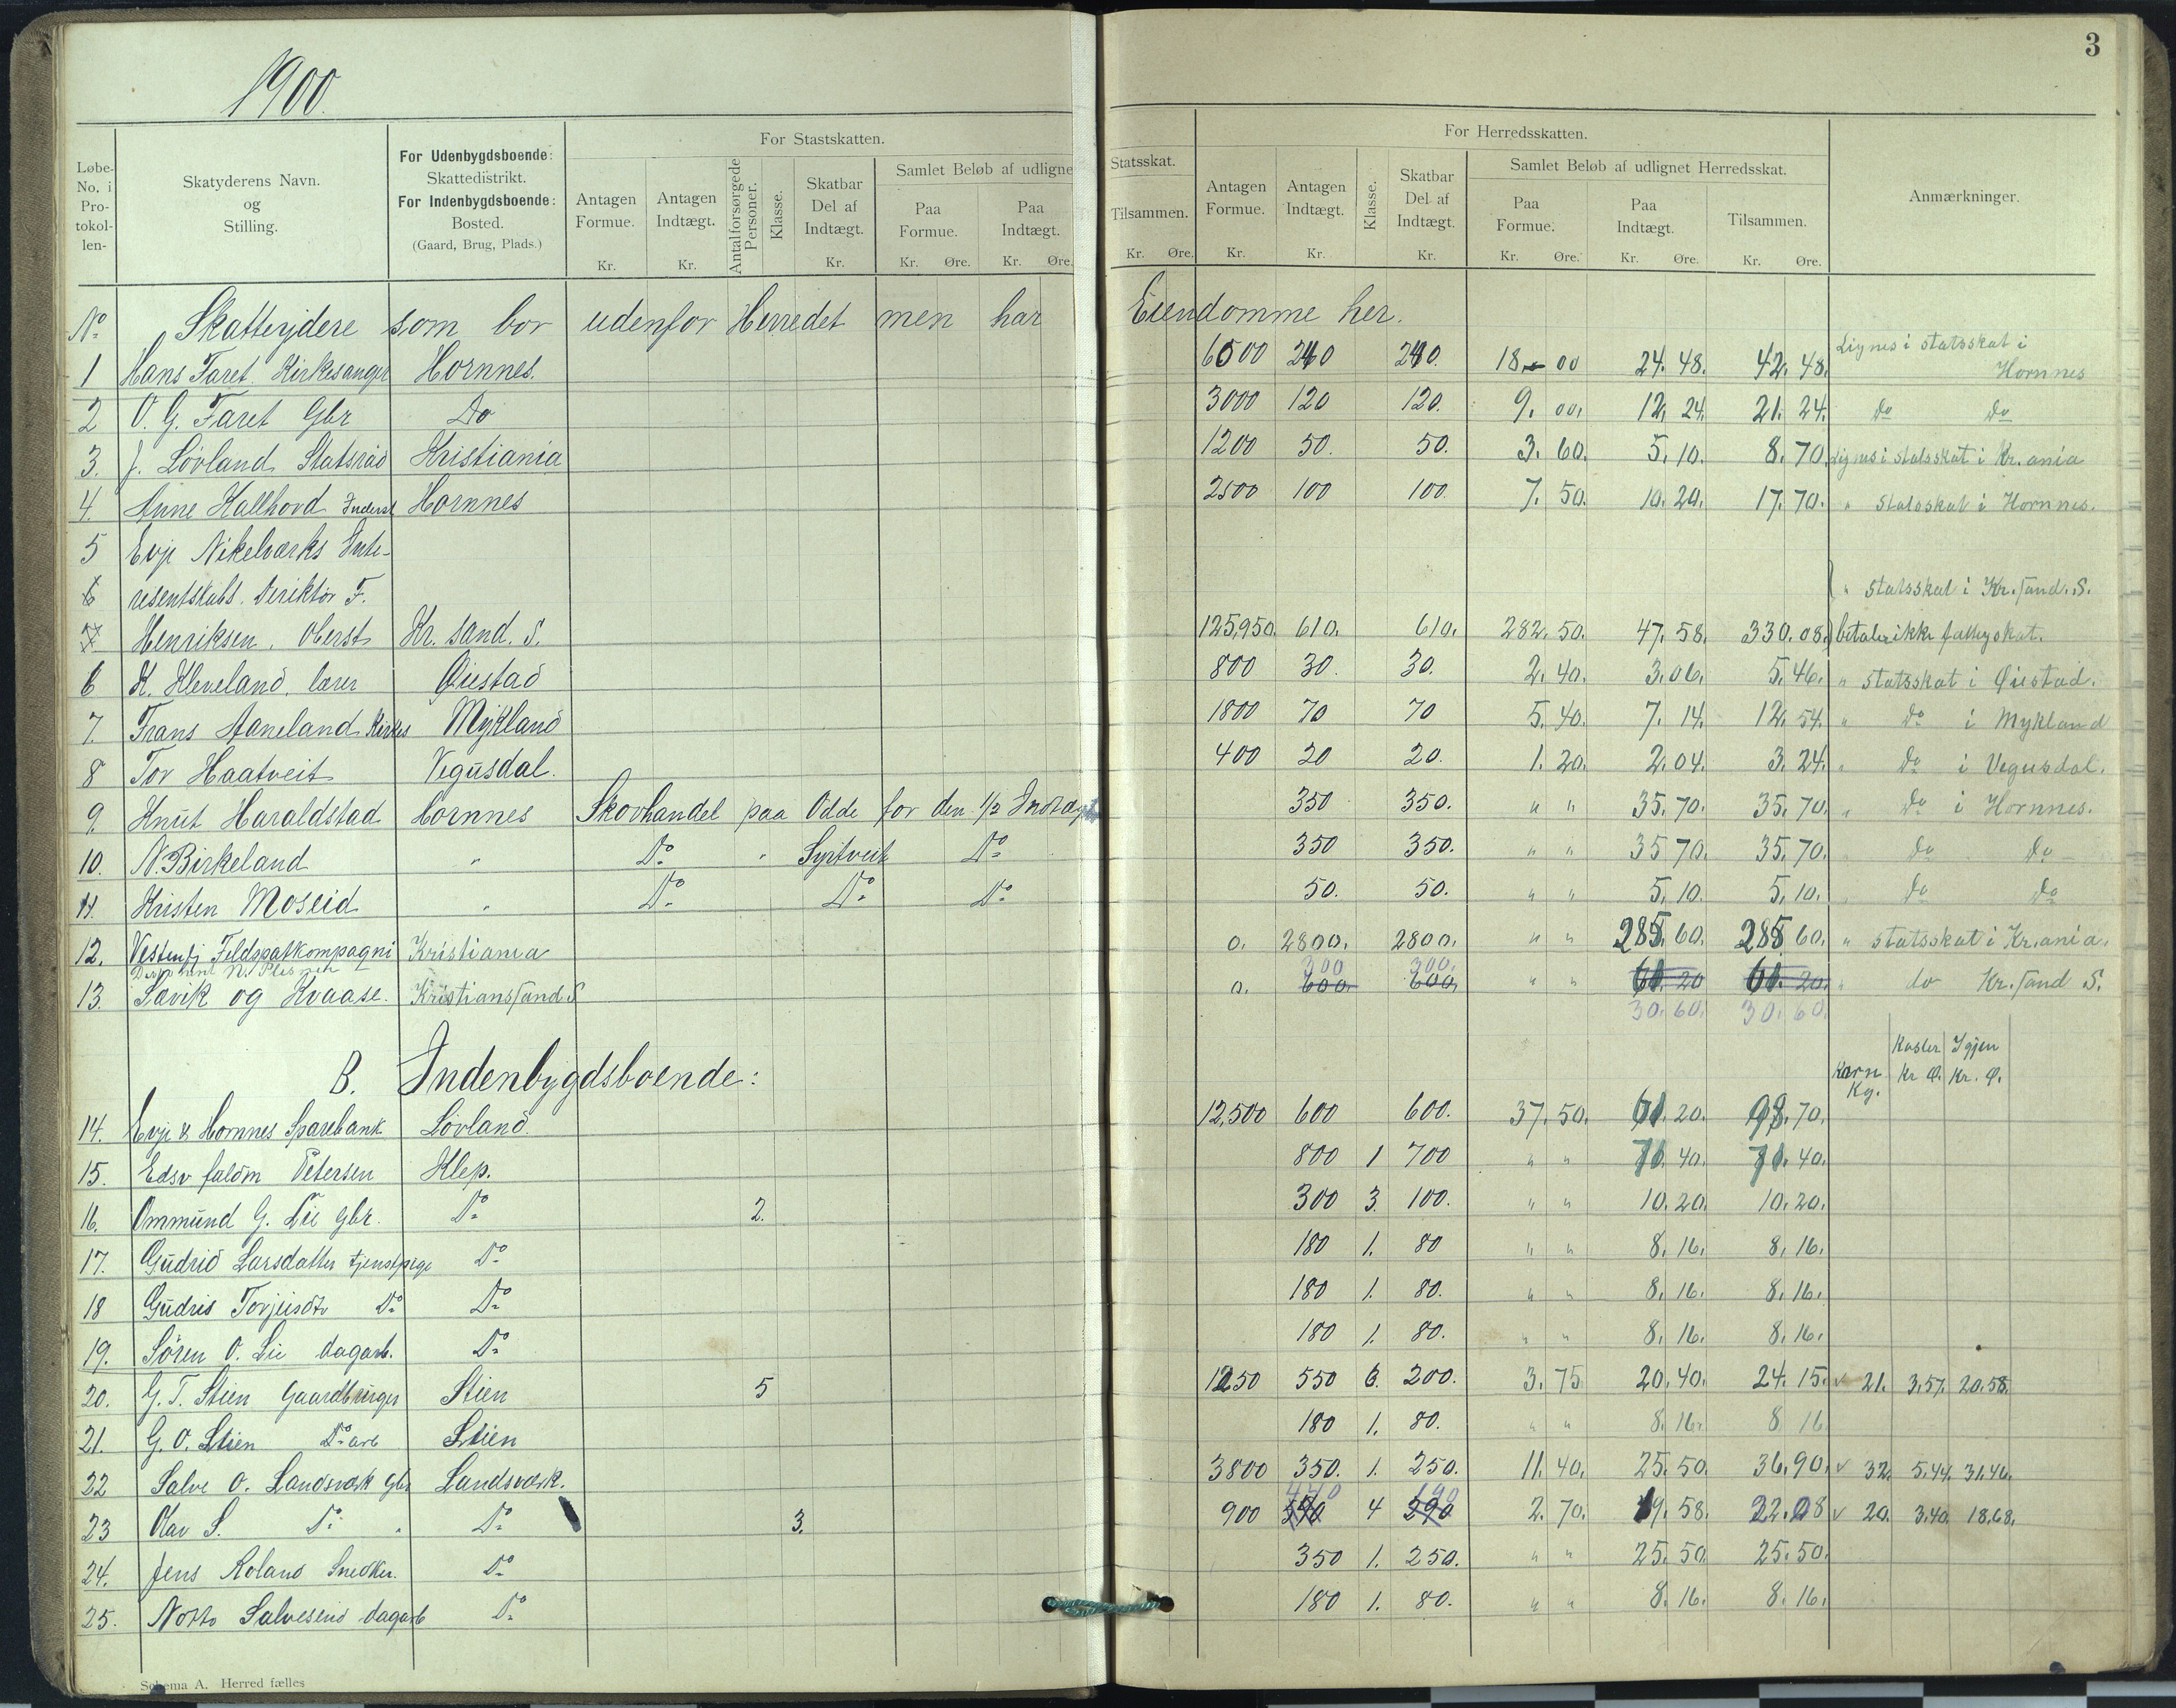 1900.
3
Løbe-No. i Protokol-len-
Skatyderens Navn. og Stilling.
For Udenbygdsboende: Skattedistrikt. For Indenbygdsboende: Bosted. (Gaard, Brug, Plads.)
For Stastskatten.
Antagen Formue. Kr.
Antagen Indtægt. Kr.
Antal forsørgede Personer.
Klasse.
Skatbar Del af Indtægt. Kr.
Samlet Beløb af udligne
Paa Formue. Kr. Øre.
Paa Indtægt. Kr. Øre.
Statsskat.
Tilsammen. Kr. Øre.
For Herredsskatten.
Antagen Formue. Kr.
Antagen Indtægt. Kr.
Klasse.
Skatbar Del af Indtægt. Kr.
Samlet Beløb af udlignet Herredsskat.
Paa Formue. Kr. Øre.
Paa Indtægt. Kr. Øre.
Tilsammen. Kr. Øre.
Anmærkninger.
No Skatteydere som bor udenfor Herredet men har Eiendomme her.
1 Hans Faret Kirkesanger Hornnes. 6500 240 240. 18 00 24. 48. 42. 48. Lignes i statsskat i Hornnes
2 O. G. Faret Gbr Do 3000 120 120. 9. 00. 12. 24. 21. 24. do do
3. J. Lövland Statsråd Kristiania 1200 50. 50. 3. 60. 5. 10. 8. 70. Lignes i statsskat i Kr.ania
4. Anne Kallhovd Hornnes 2500 100 100. 7. 50. 10. 20. 17. 70. " Statsskat i Hornnes.
5 Evje Nikelværks Inte-
6 resentskabs. Direktör F. " Statsskat i Kr.sand. S.
7 Henriksen. Oberst Kr. sand. S. 125,950. 610. 610. 282. 50. 47. 58. 330. 08. betaler ikke fattigskat.
6 K. Kleveland. lærer Øiestad 800 30. 30. 2. 40. 3. 06. 5. 46. " Statsskat i Øiestad.
7. Frans Aaneland Kirkes Mykland 1800 70 70 5. 40. 7. 14. 12. 54. " do i Mykland
8 Tor Haatveit Vegusdal. 400 20 20. 1. 20. 2. 04. 3. 24. " do i Vegusdal.
9. Knut Haraldstad Hornnes Skovhandel paa Odde for den 1/2 Indtægt 350 350. " " 35. 70. 35. 70. " do i Hornnes.
10. N. Birkeland " Do " Syrtveit Do 350 350. " " 35 70. 35. 70. " do do
11. Kristen Moseid " Do Do Do 50. 50. " " 5. 10. 5. 10. " do do
12. Vestenfj Feldspatkompagni Kristiania 0. 2800. 2800. " " 285. 60. 285 60. " Statsskat i Kr.ania.
300 300.
13. Savik og Kvaase. Kristianssand S 0. 600. 600. " " 61. 20 61. 20. " do Kr.sand S.
30. 60. 30. 60.
B. Indenbygdsboende:
Korn Kg. Koster Kr Ø. Igjen Kr. Ø.
14. Evje & Hornnes Sparebank Lövland. 12,500 600 600. 37. 50. 61. 20. 98. 70.
15. Edsv faldm Petersen Klep. 800 1 700 " " 71. 40. 71. 40.
16. Ommund G. Lie gbr. Do 2. 300 3. 100. " " 10. 20. 10. 20.
17. Gudrid Larsdatter tjenstpige Do 180 1. 80 " " 8. 16. 8. 16.
18 Gudris Torjusdtr Do Do 180 1. 80. " " 8. 16. 8. 16.
19. Sören O. Lie dagarb. Do 180 1. 80. " " 8. 16. 8. 16.
20. G. T. Stien Gaardbruger Stien 5 1250 550 6. 200. 3. 75 20. 40. 24. 15. 21. 3.57. 20.58.
21. G. O. Stien Do arb Stien 180 1. 80. " " 8. 16. 8 16
22 Salve O. Landsværk Gbr Landsværk. 3800 350. 1. 250. 11. 40. 25. 50. 36. 90. 32. 5.44. 31.46.
440 190
23 Olav S. Do " Do 3. 900 4 290 2. 70. 19. 58. 22. 28 20. 3.40. 18.68.
24. Jens Roland Snedker. Do 350 1. 250. " " 25. 50. 25. 50.
25. Notto Salvesens dagarb Do 180 1. 80. " " 8. 16. 8. 16.
Schema A. Herred fælles